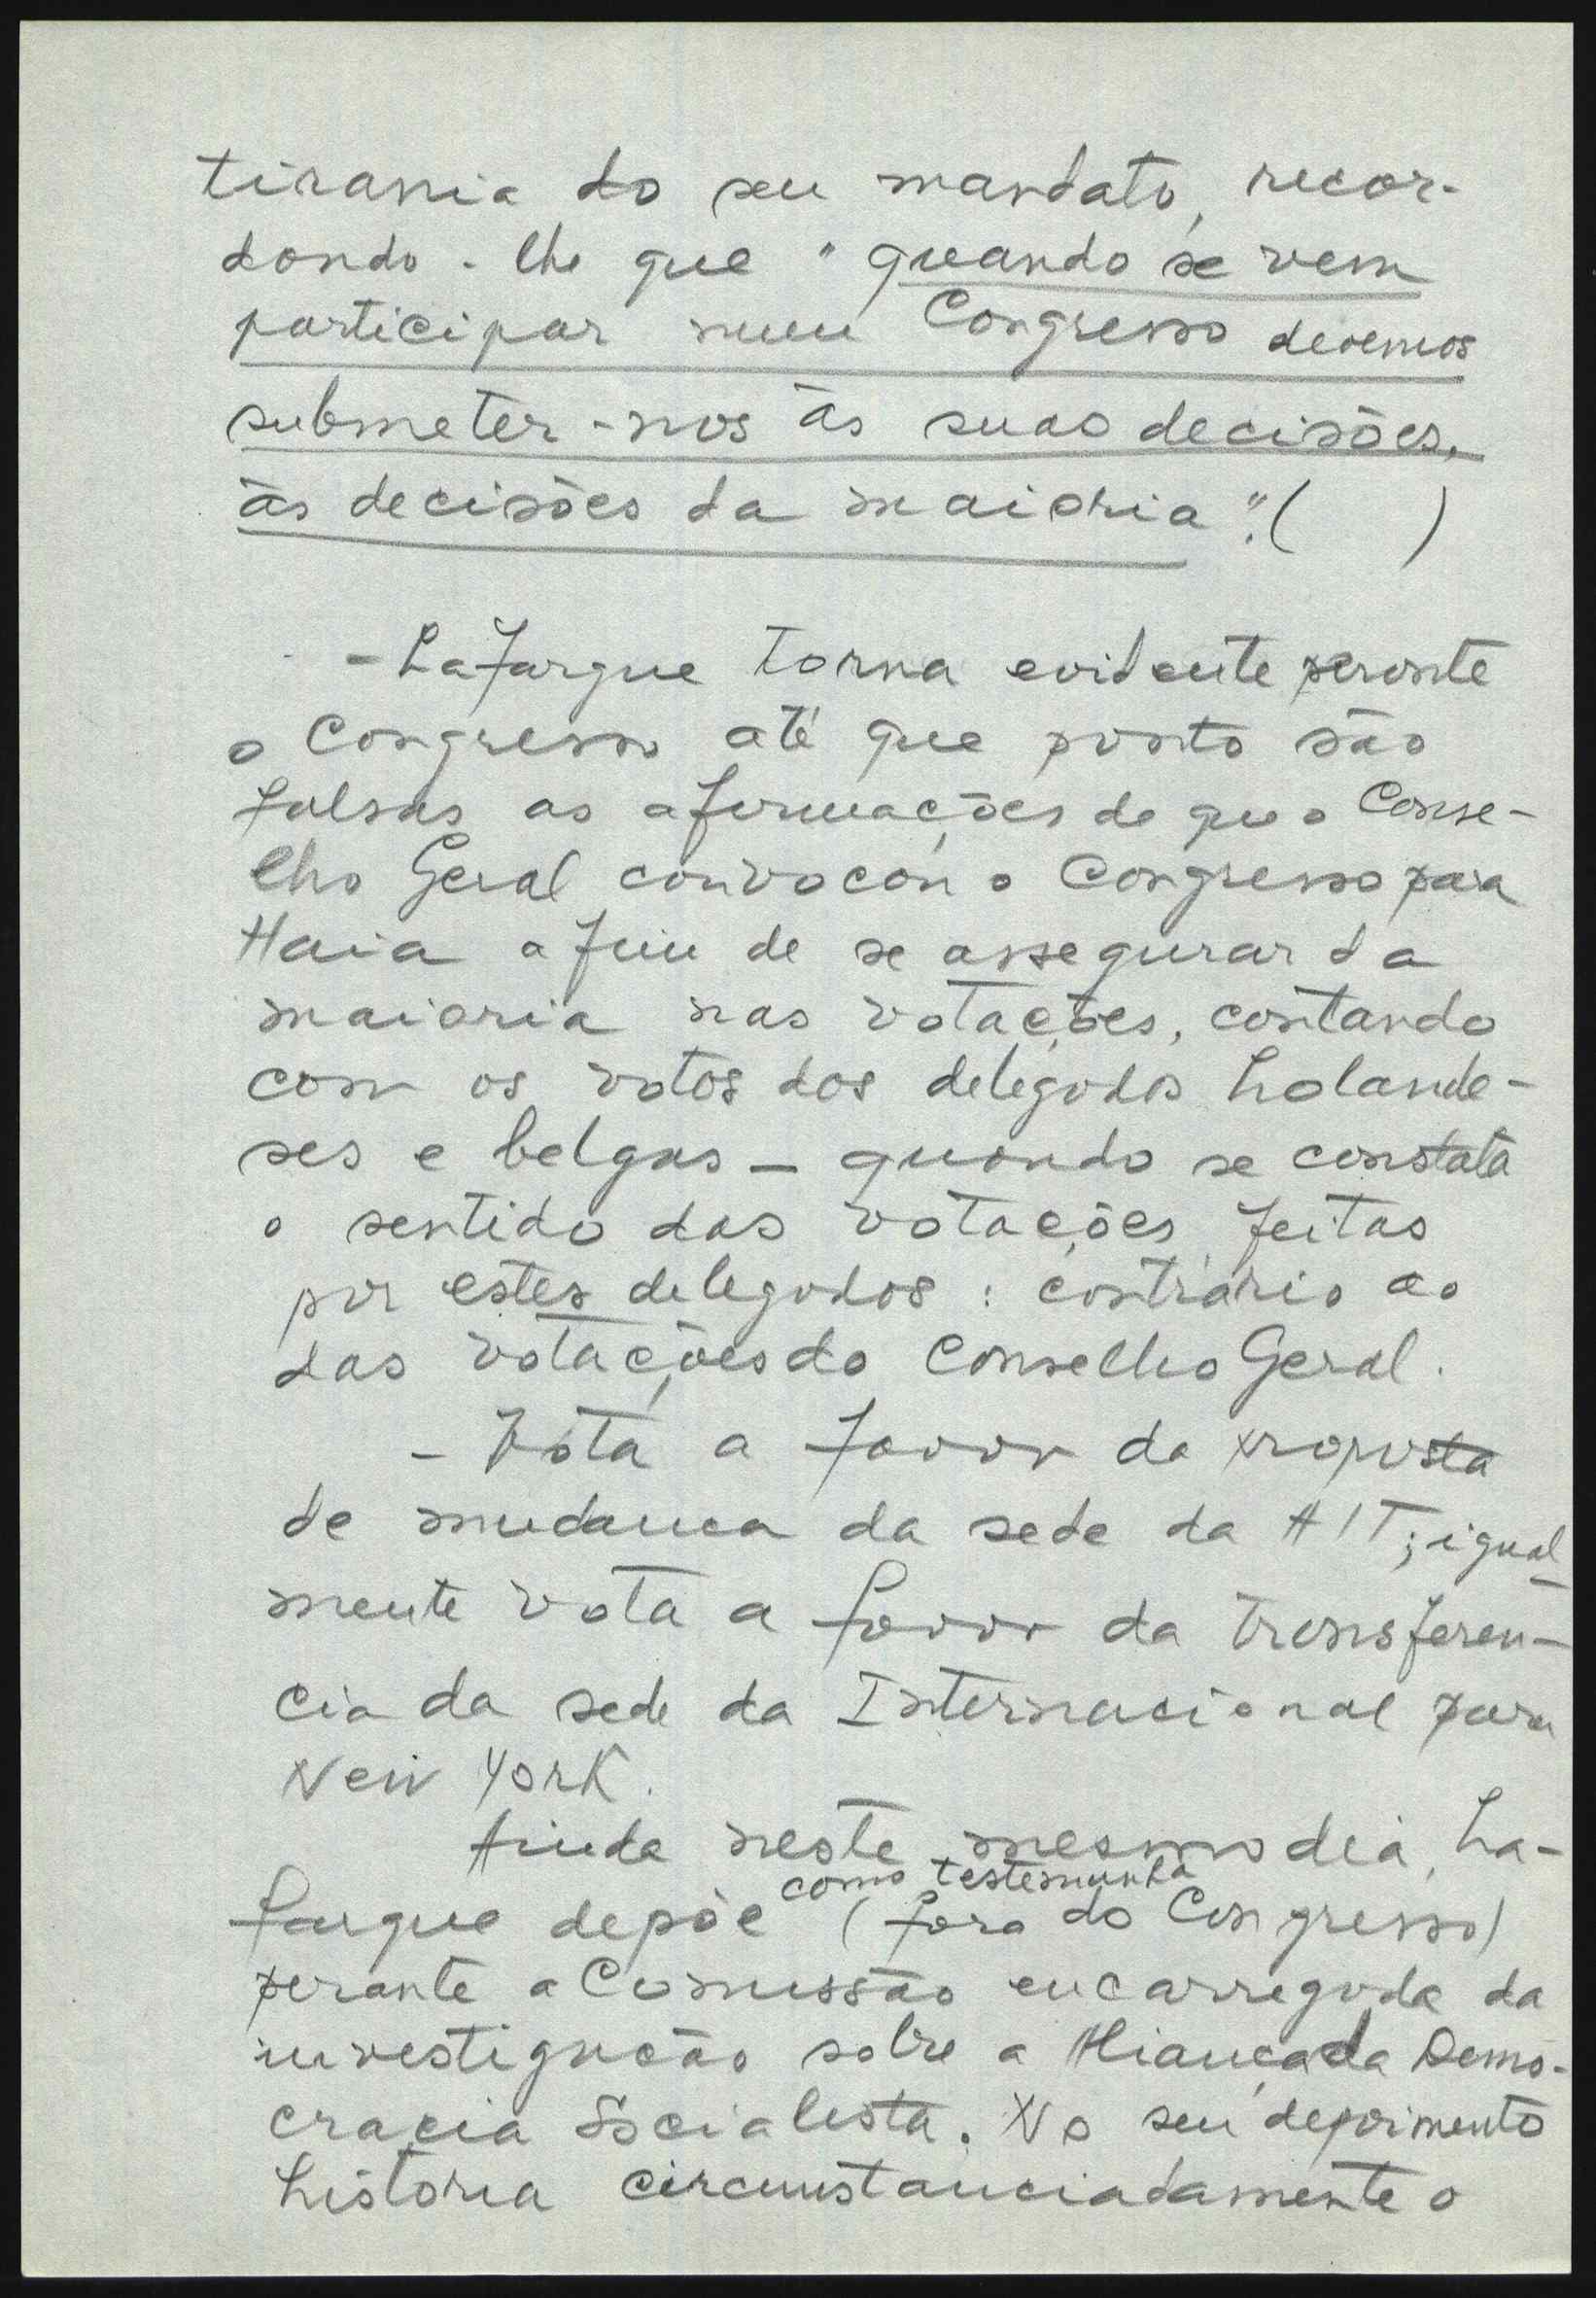 tirania do seu mandato, recor-
dando-lhe que "quando se vem
participar num Congresso devemos
submeter-nos às suas decisões,
às decisões da maioria". (      )
- Lafargue torna evidente perante
o Congresso até que ponto são
falsas as afirmações de que o Conse-
lho Geral convocou o Congresso para
Haia a fim de se assegurar da
maioria nas votações, contando
com os votos dos delegados holande-
ses e belgas - quando se constata
o sentido das votações feitas
por estes delegados: contrário ao
das votações do Conselho Geral.
- Vota a favor da proposta
de mudança da sede da AIT; igual-
mente vota a favor da transferen-
cia da sede da Internacional para
New York.
Ainda neste mesmo dia, La-
fargue depõe como testemunha (fora do Congresso)
perante a Comissão encarregada da
investigação sobre a Aliança da Demo-
cracia Socialista. No seu depoimento
historia circunstanciadamente o